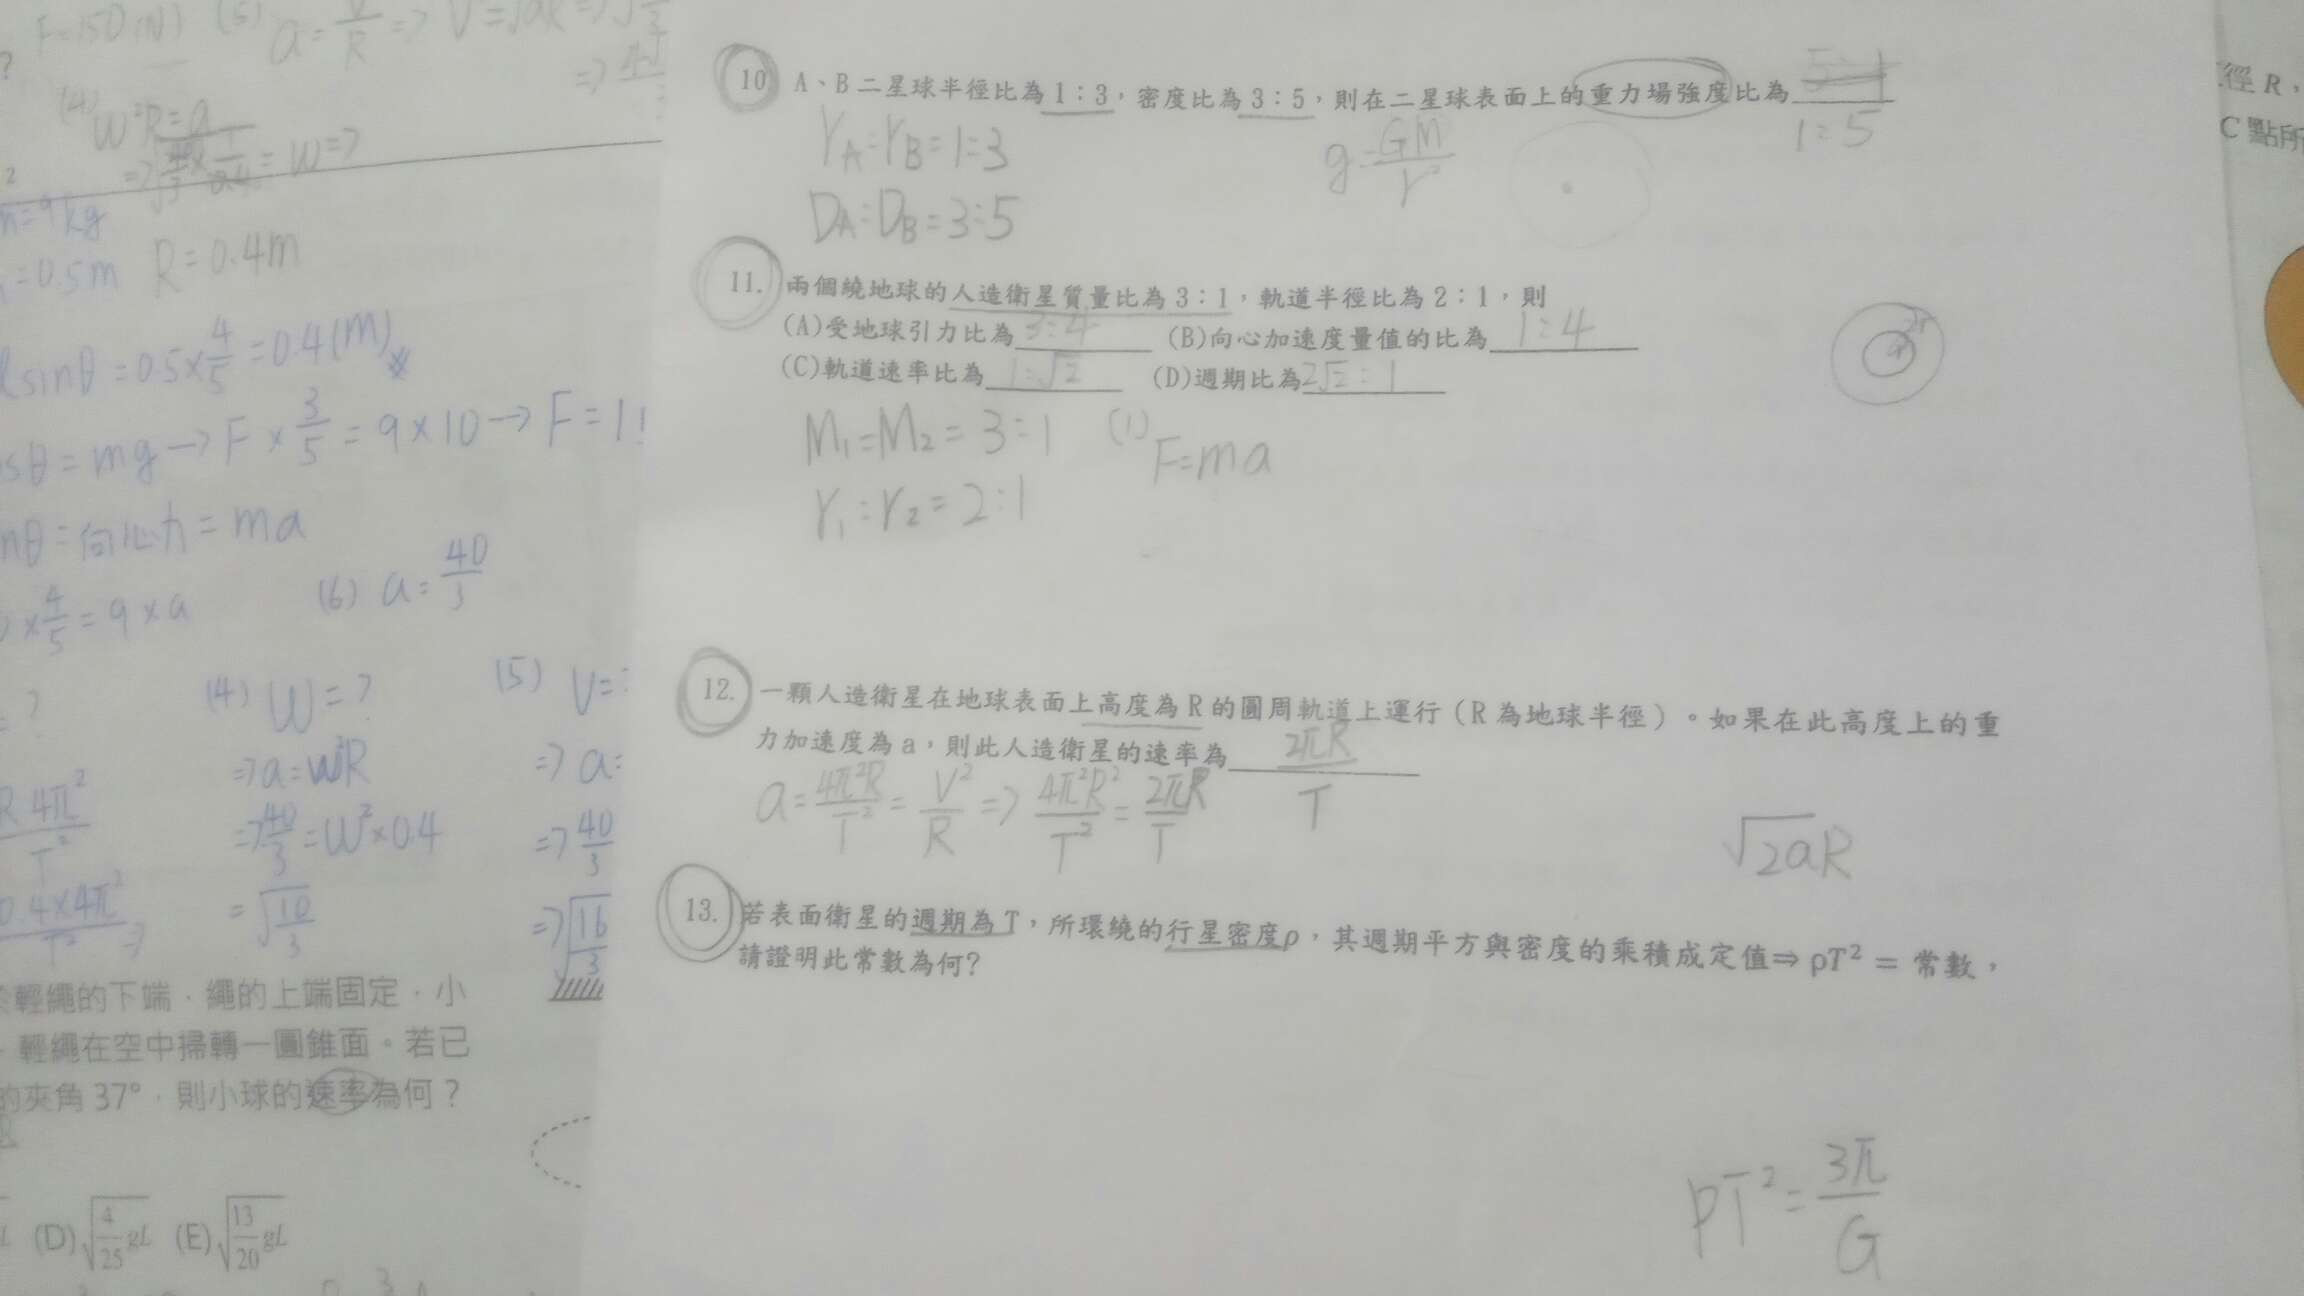 F=150(N) (5) a=V/R => V=√aR =>
?
(4) W²R=a
= W=?
2
m=9kg
=0.5m R=0.4m
lsinθ=0.5×4/5=0.4(m)
sθ=mg→F×3/5=9×10→F=1
nθ=向心力=ma
×4/5=9×a
(6) a=40/3
= ?
(4) W=?
(5) V=?
=>a=W²R
=>a=
R4π²/T²
=>40/3=W²×0.4
=>40/3
0.4×4π²/T² =>
=√10/3
=>√16/3
輕繩的下端,繩的上端固定,小
輕繩在空中掃轉一圓錐面。若已
的夾角 37°,則小球的速率為何?
(D)√4/25 gL (E)√13/20 gL
10. A、B二星球半徑比為1:3,密度比為3:5,則在二星球表面上的重力場強度比為
5:1
1:5
rA:rB=1:3
g=GM/r²
DA:DB=3:5
11. 兩個繞地球的人造衛星質量比為3:1,軌道半徑比為2:1,則
(A)受地球引力比為 3:4 (B)向心加速度量值的比為 1:4
(C)軌道速率比為 1:√2 (D)週期比為 2√2:1
M₁:M₂=3:1 (1) F=ma
r₁:r₂=2:1
12. 一顆人造衛星在地球表面上高度為R的圓周軌道上運行(R為地球半徑)。如果在此高度上的重
力加速度為a,則此人造衛星的速率為 2πR/T
a=4π²R/T²=V²/R=>4π²R²/T²=2πR/T
√2aR
13. 若表面衛星的週期為T,所環繞的行星密度ρ,其週期平方與密度的乘積成定值⇒ρT²=常數,
請證明此常數為何?
ρT²=3π/G
徑R,
C點所